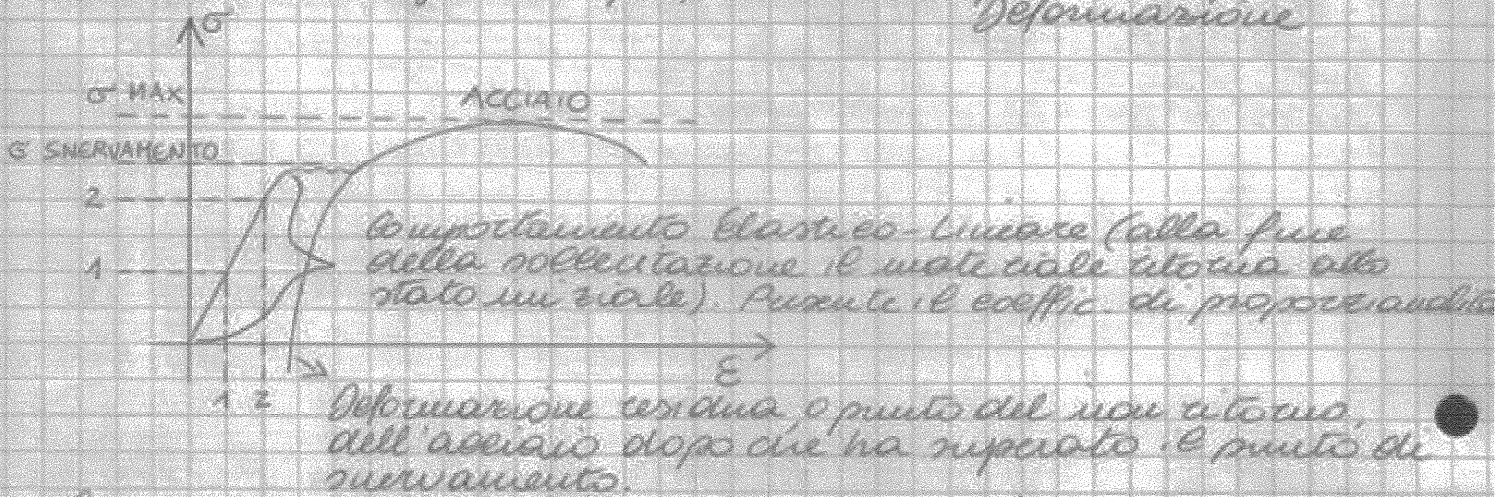 Deformazione
σ
σ MAX
ACCIAIO
σ SNERVAMENTO
2
Comportamento Elastico-Lineare (alla fine
1
della sollecitazione il materiale ritorna allo
stato iniziale). Presente il coeffic. di proporzionalità
ε
1 2
Deformazione residua o punto del non ritorno
dell'acciaio dopo che ha superato il punto di
snervamento.